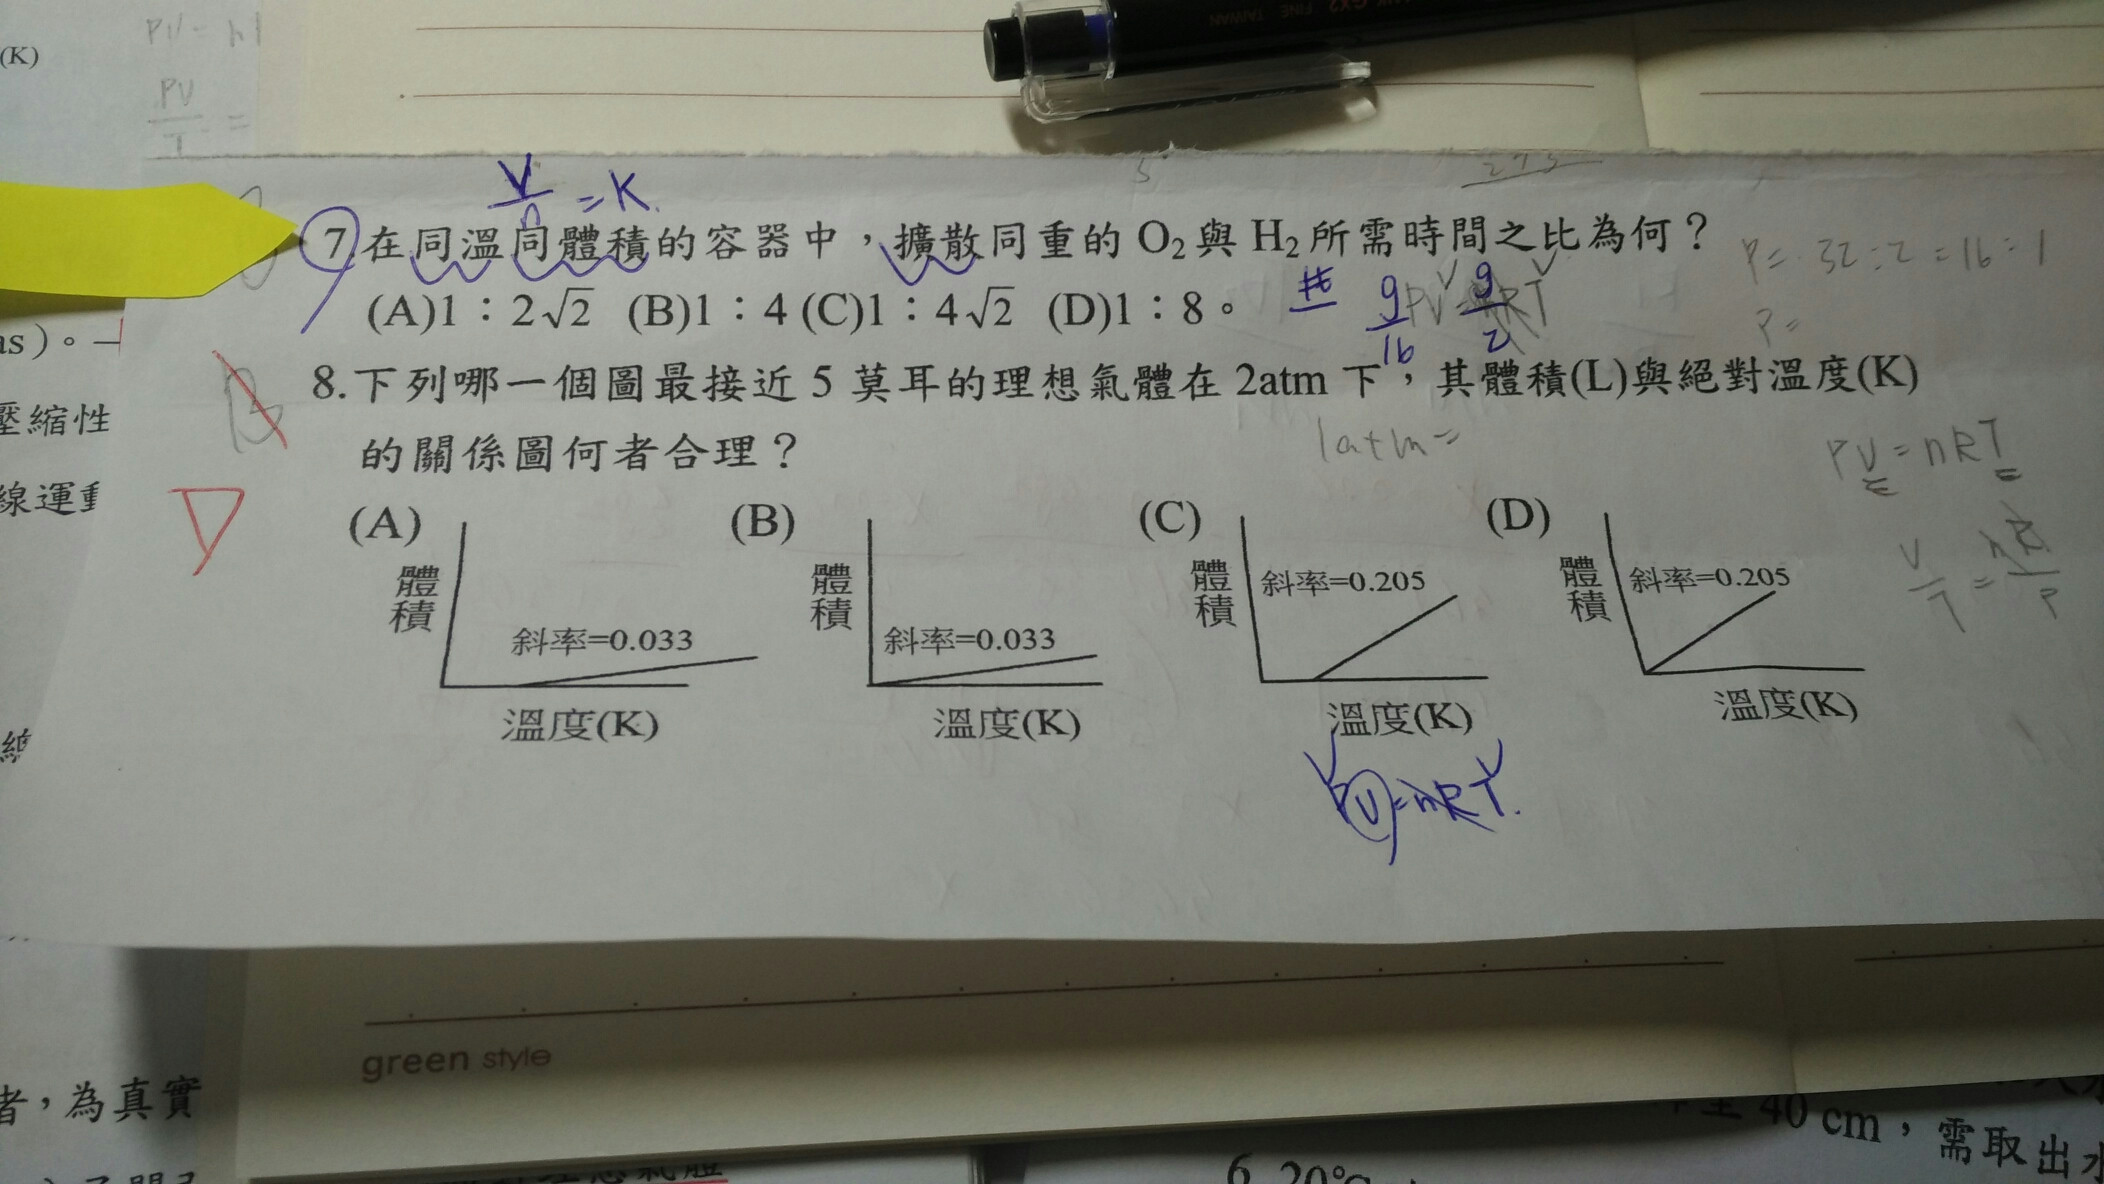 (K)
PV
V/n = K.
7.在同溫同體積的容器中，擴散同重的 O₂與 H₂所需時間之比為何？
P= 32:2=16:1
(A)1：2√2 (B)1：4 (C)1：4√2 (D)1：8。
g/16 PV=nRT g/2
P=
as)。
8.下列哪一個圖最接近 5 莫耳的理想氣體在 2atm 下，其體積(L)與絕對溫度(K)
壓縮性
的關係圖何者合理？
1atm=
PV=nRT
V/T = nR/P
(A) (B) (C) (D)
體積 體積 體積 體積
斜率=0.033 斜率=0.033 斜率=0.205 斜率=0.205
溫度(K) 溫度(K) 溫度(K) 溫度(K)
PV=nRT.
線
green style
者，為真實
40 cm，需取出水
6. 20℃